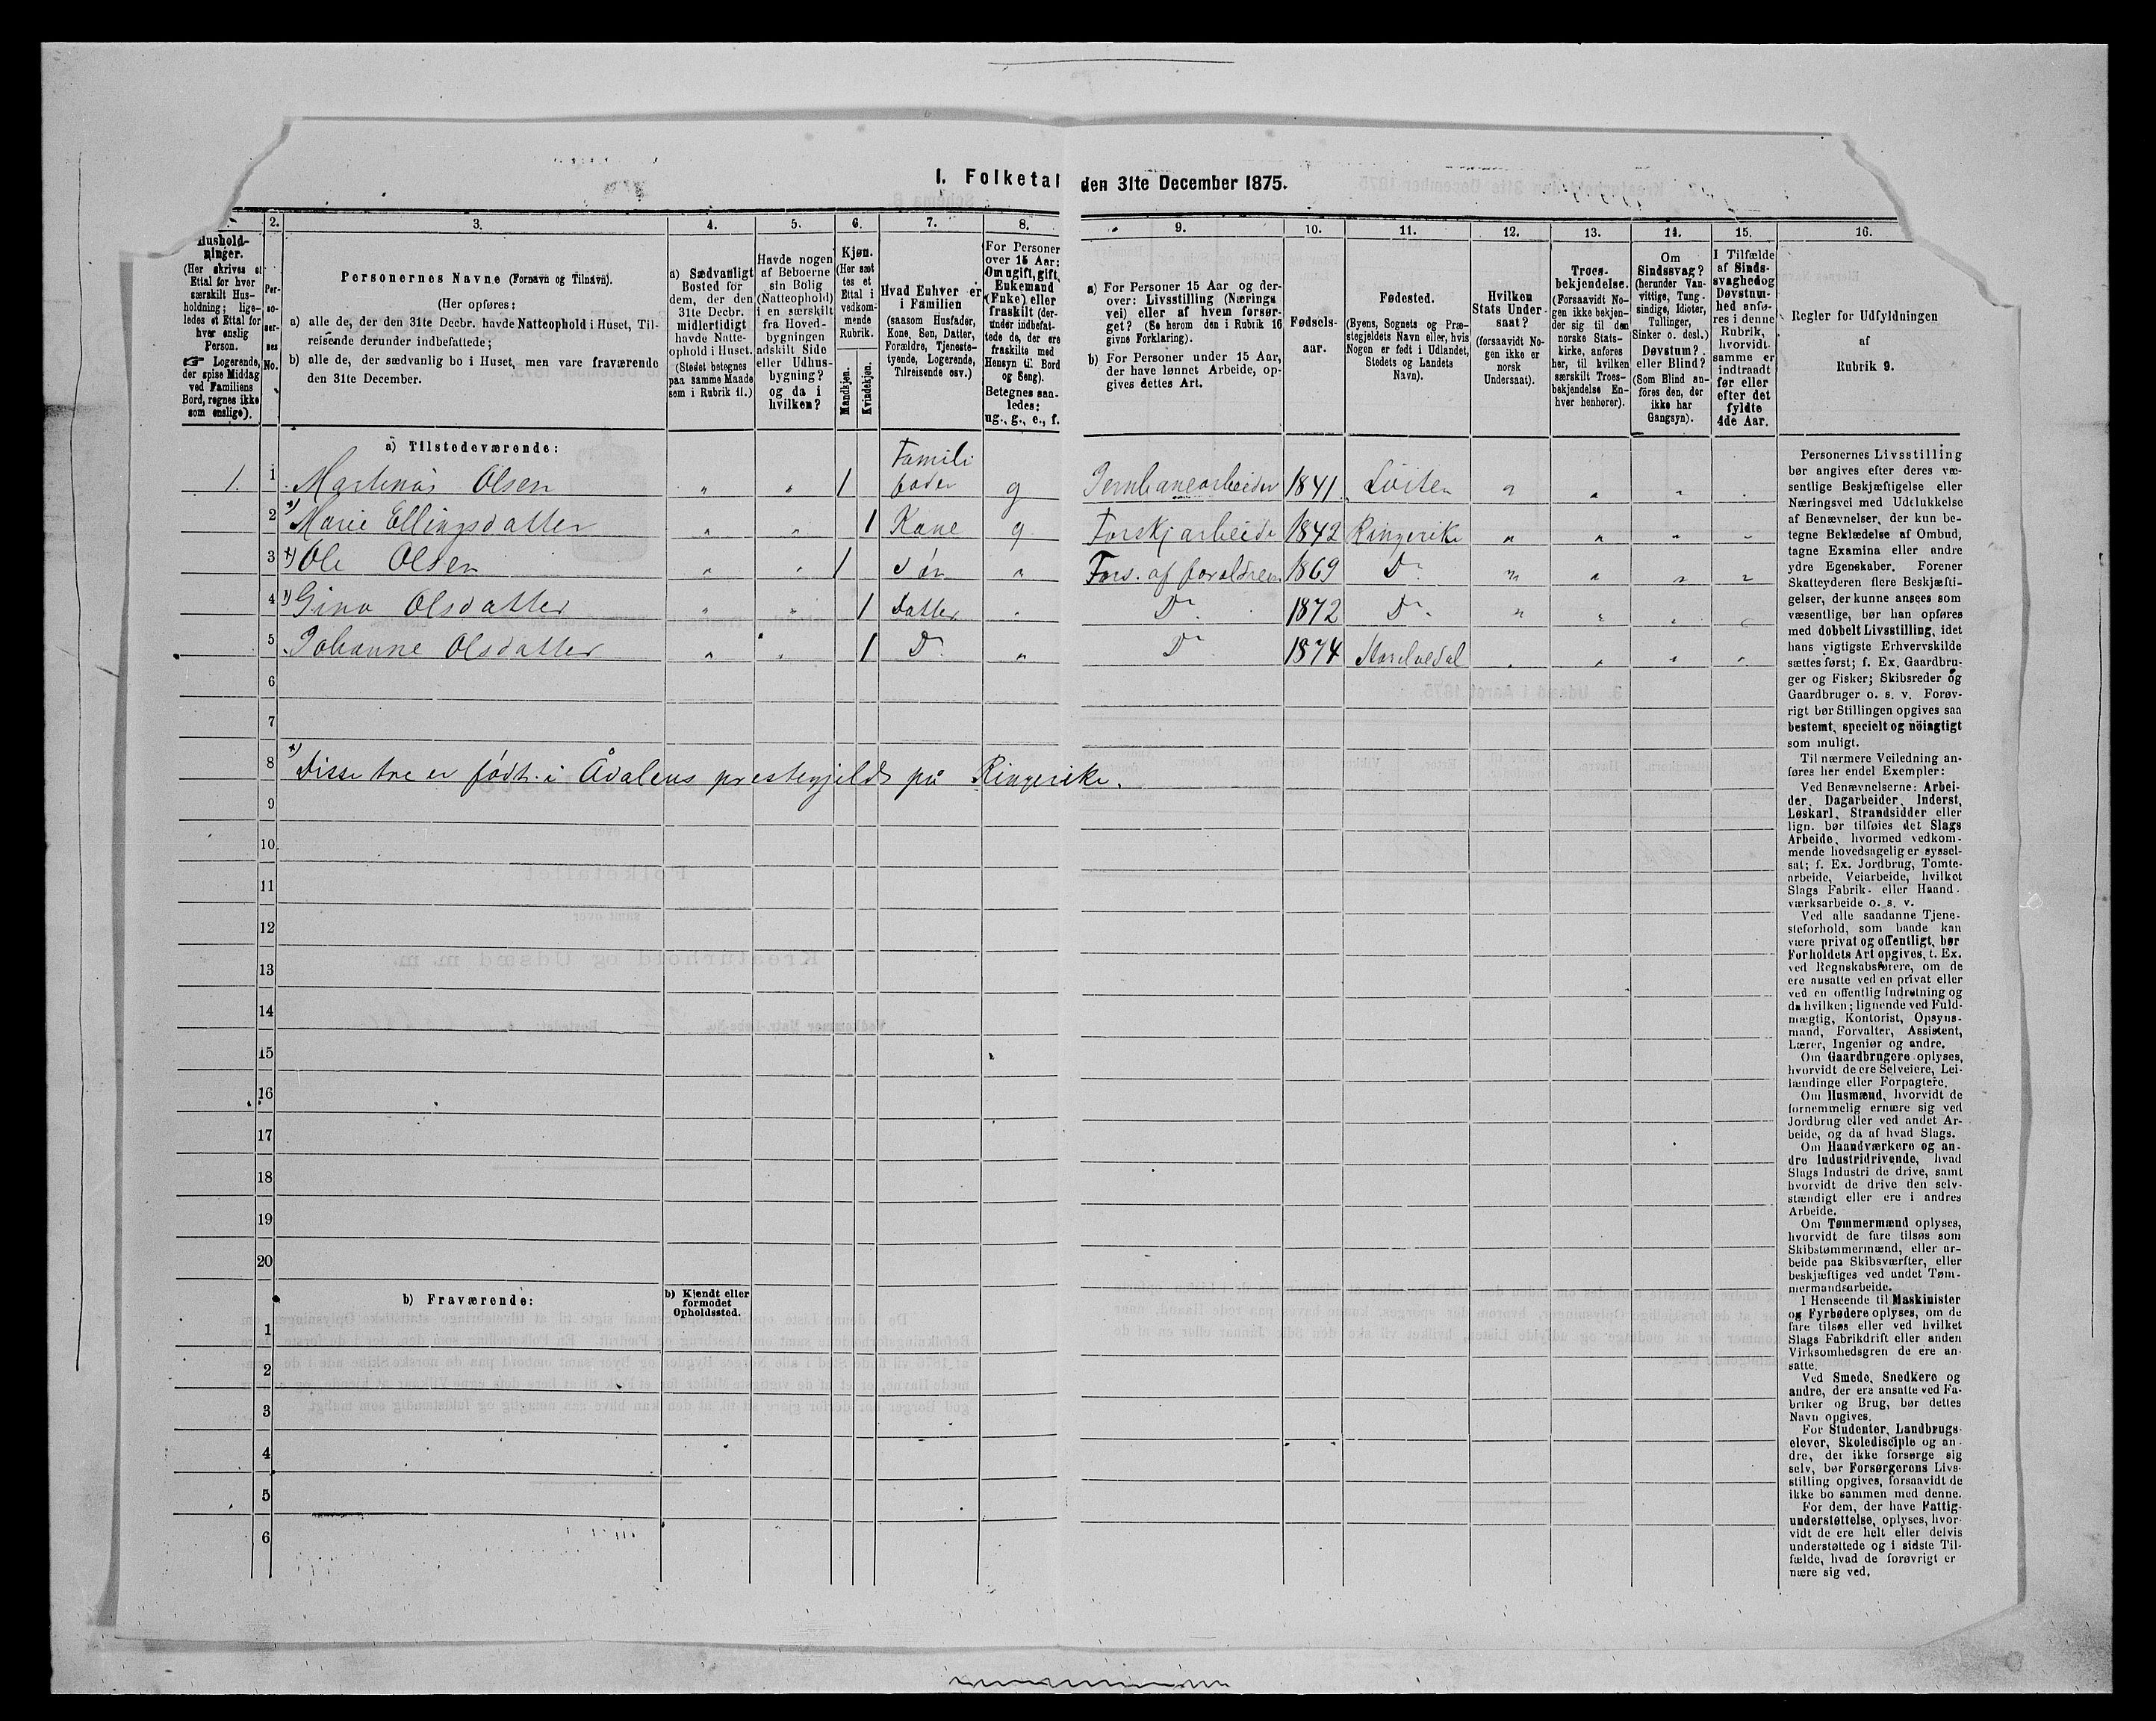 I. Folketal den 31te December 1875.
2. 3. 4. 5. 6. 7. 8. 9. 10. 11. 12. 13. 14. 15. 16.
Hushold-
ninger.
(Her skrives et
Ettal for hver
særskilt Hus-
holdning; lige-
ledes et Ettal for
hver enslig
Person.
☞ Logerende,
der spise Middag
ved Familiens
Bord, regnes ikke
som enslige).
Per-
so-
ner-
nes
No.
Personernes Navne (Fornavn og Tilnavn).
(Her opføres:
a) alle de, der den 31te Decbr. havde Natteophold i Huset, Til-
reisende derunder indbefattede;
b) alle de, der sædvanlig bo i Huset, men vare fraværende
den 31te December.
a) Sædvanligt
Bosted for
dem, der den
31te Decbr.
midlertidigt
havde Natte-
ophold i Huset.
(Stedet betegnes
paa samme Maade
som i Rubrik 11.)
Havde nogen
af Beboerne
sin Bolig
(Natteophold)
i en særskilt
fra Hoved-
bygningen
adskilt Side
eller Udhus-
bygning?
og da i
hvilken?
Kjøn.
(Her sæt
tes et
Ettal i
vedkom-
mende
Rubrik.
Mandkjøn.
Kvindekjøn.
Hvad Enhver er
i Familien
(saasom Husfader,
Kone, Søn, Datter,
Forældre, Tjeneste-
tyende, Logerende,
Tilreisende osv.)
For Personer
over 15 Aar:
Om ugift, gift,
Enkemand
(Enke) eller
fraskilt (der-
under indbefat-
tede de, der ere
fraskilte med
Hensyn til Bord
og Seng).
Betegnes saa-
ledes:
ug., g., e., f.
a) For Personer 15 Aar og der-
over: Livsstilling (Nærings
vei) eller af hvem forsør-
get? (Se herom den i Rubrik 16
givne Forklaring).
b) For Personer under 15 Aar,
der have lønnet Arbeide, op-
gives dettes Art.
Fødsels-
aar.
Fødested.
(Byens, Sognets og Præ-
stegjeldets Navn eller, hvis
Nogen er født i Udlandet,
Stedets og Landets
Navn).
Hvilken
Stats Under-
saat?
(forsaavidt No-
gen ikke er
norsk
Undersaat).
Troes-
bekjendelse.
(Forsaavidt No-
gen ikke bekjen-
der sig til den
norske Stats-
kirke, anføres
her, til hvilken
særskilt Troes-
bekjendelse En-
hver henhører).
Om
Sindssvag?
(herunder Van-
vittige, Tung-
sindige, Idioter,
Tullinger,
Sinker o. desl.)
Døvstum?
eller Blind?
(Som Blind an-
føres den, der
ikke har
Gangsyn).
I Tilfælde
af Sinds-
svaghed og
Døvstum-
hed anfø-
res i denne
Rubrik,
hvorvidt
samme er
indtraadt
før eller
efter det
fyldte
4de Aar.
Regler for Udfyldningen
af
Rubrik 9.
a) Tilstedeværende:
1. 1 Martinus Olsen " " 1 Famili fader g Jernbanearbeider 1841 Løiten " " " "
2 x) Marie Ellingsdatter " " 1 Kone g Forskj arbeide 1842 Ringerike " " " "
3 x) Ole Olsen " " 1 Søn " Fors. af foraldren 1869 Do " " " "
4 x) Gina Olsdatter " " 1 Datter " Do 1872 Do " " " "
5 Johanne Olsdatter " " 1 Do " Do 1874 " " " "
6
7
8 x) Disse tre er født i Ådalens prestegjeld på Ringerike.
9
10
11
12
13
14
15
16
17
18
19
20
b) Fraværende:
b) Kjendt eller
formodet
Opholdssted.
1
2
3
4
5
6
Personernes Livsstilling
bør angives efter deres væ-
sentlige Beskjæftigelse eller
Næringsvei med Udelukkelse
af Benævnelser, der kun be-
tegne Beklædelse af Ombud,
tagne Examina eller andre
ydre Egenskaber. Forener
Skatteyderen flere Beskjæfti-
gelser, der kunne ansees som
væsentlige, bør han opføres
med dobbelt Livsstilling, idet
hans vigtigste Erhvervskilde
sættes først; f. Ex. Gaardbru-
ger og Fisker; Skibsreder og
Gaardbruger o. s. v. Forøv-
rigt bør Stillingen opgives saa
bestemt, specielt og nöiagtigt
som muligt.
Til nærmere Veiledning an-
føres her endel Exempler:
Ved Benævnelserne: Arbei-
der, Dagarbeider, Inderst,
Løskarl, Strandsidder eller
lign. bør tilføies det Slags
Arbeide, hvormed vedkom-
mende hovedsagelig er syssel-
sat; f. Ex. Jordbrug, Tomte-
arbeide, Veiarbeide, hvilket
Slags Fabrik- eller Haand-
værksarbeide o. s. v.
Ved alle saadanne Tjene-
steforhold, som baade kan
være privat og offentligt, bør
Forholdets Art opgives, t. Ex.
ved Regnskabsførere, om de
ere ansatte ved en privat eller
ved en offentlig Indretning og
da hvilken; lignende ved Fuld-
mægtig, Kontorist, Opsyns-
mand, Forvalter, Assistent,
Lærer, Ingeniør og andre.
Om Gaardbrugere oplyses,
hvorvidt de ere Selveiere, Lei-
lændinge eller Forpagtere.
Om Husmænd, hvorvidt de
fornemmelig ernære sig ved
Jordbrug eller ved andet Ar-
beide, og da af hvad Slags.
Om Haandværkere og an-
dre Industridrivende, hvad
Slags Industri de drive, samt
hvorvidt de drive den selv-
stændigt eller ere i andres
Arbeide.
Om Tømmermænd oplyses,
hvorvidt de fare tilsøs som
Skibstømmermænd, eller ar-
beide paa Skibsværfter, eller
beskjæftiges ved andet Tøm-
mermandsarbeide.
I Henseende til Maskinister
og Fyrbødere oplyses, om de
fare tilsøs eller ved hvilket
Slags Fabrikdrift eller anden
Virksomhedsgren de ere an-
satte.
Ved Smede, Snedkere og
andre, der ere ansatte ved Fa-
briker og Brug, bør dettes
Navn opgives.
For Studenter, Landbrugs-
elever, Skoledisciple og an-
dre, der ikke forsørge sig
selv, bør Forsørgerens Livs-
stilling opgives, forsaavidt de
ikke bo sammen med denne.
For dem, der have Fattig-
understøttelse, oplyses, hvor-
vidt de ere helt eller delvis
understøttede og i sidste Til-
fælde, hvad de forøvrigt er
nære sig ved.